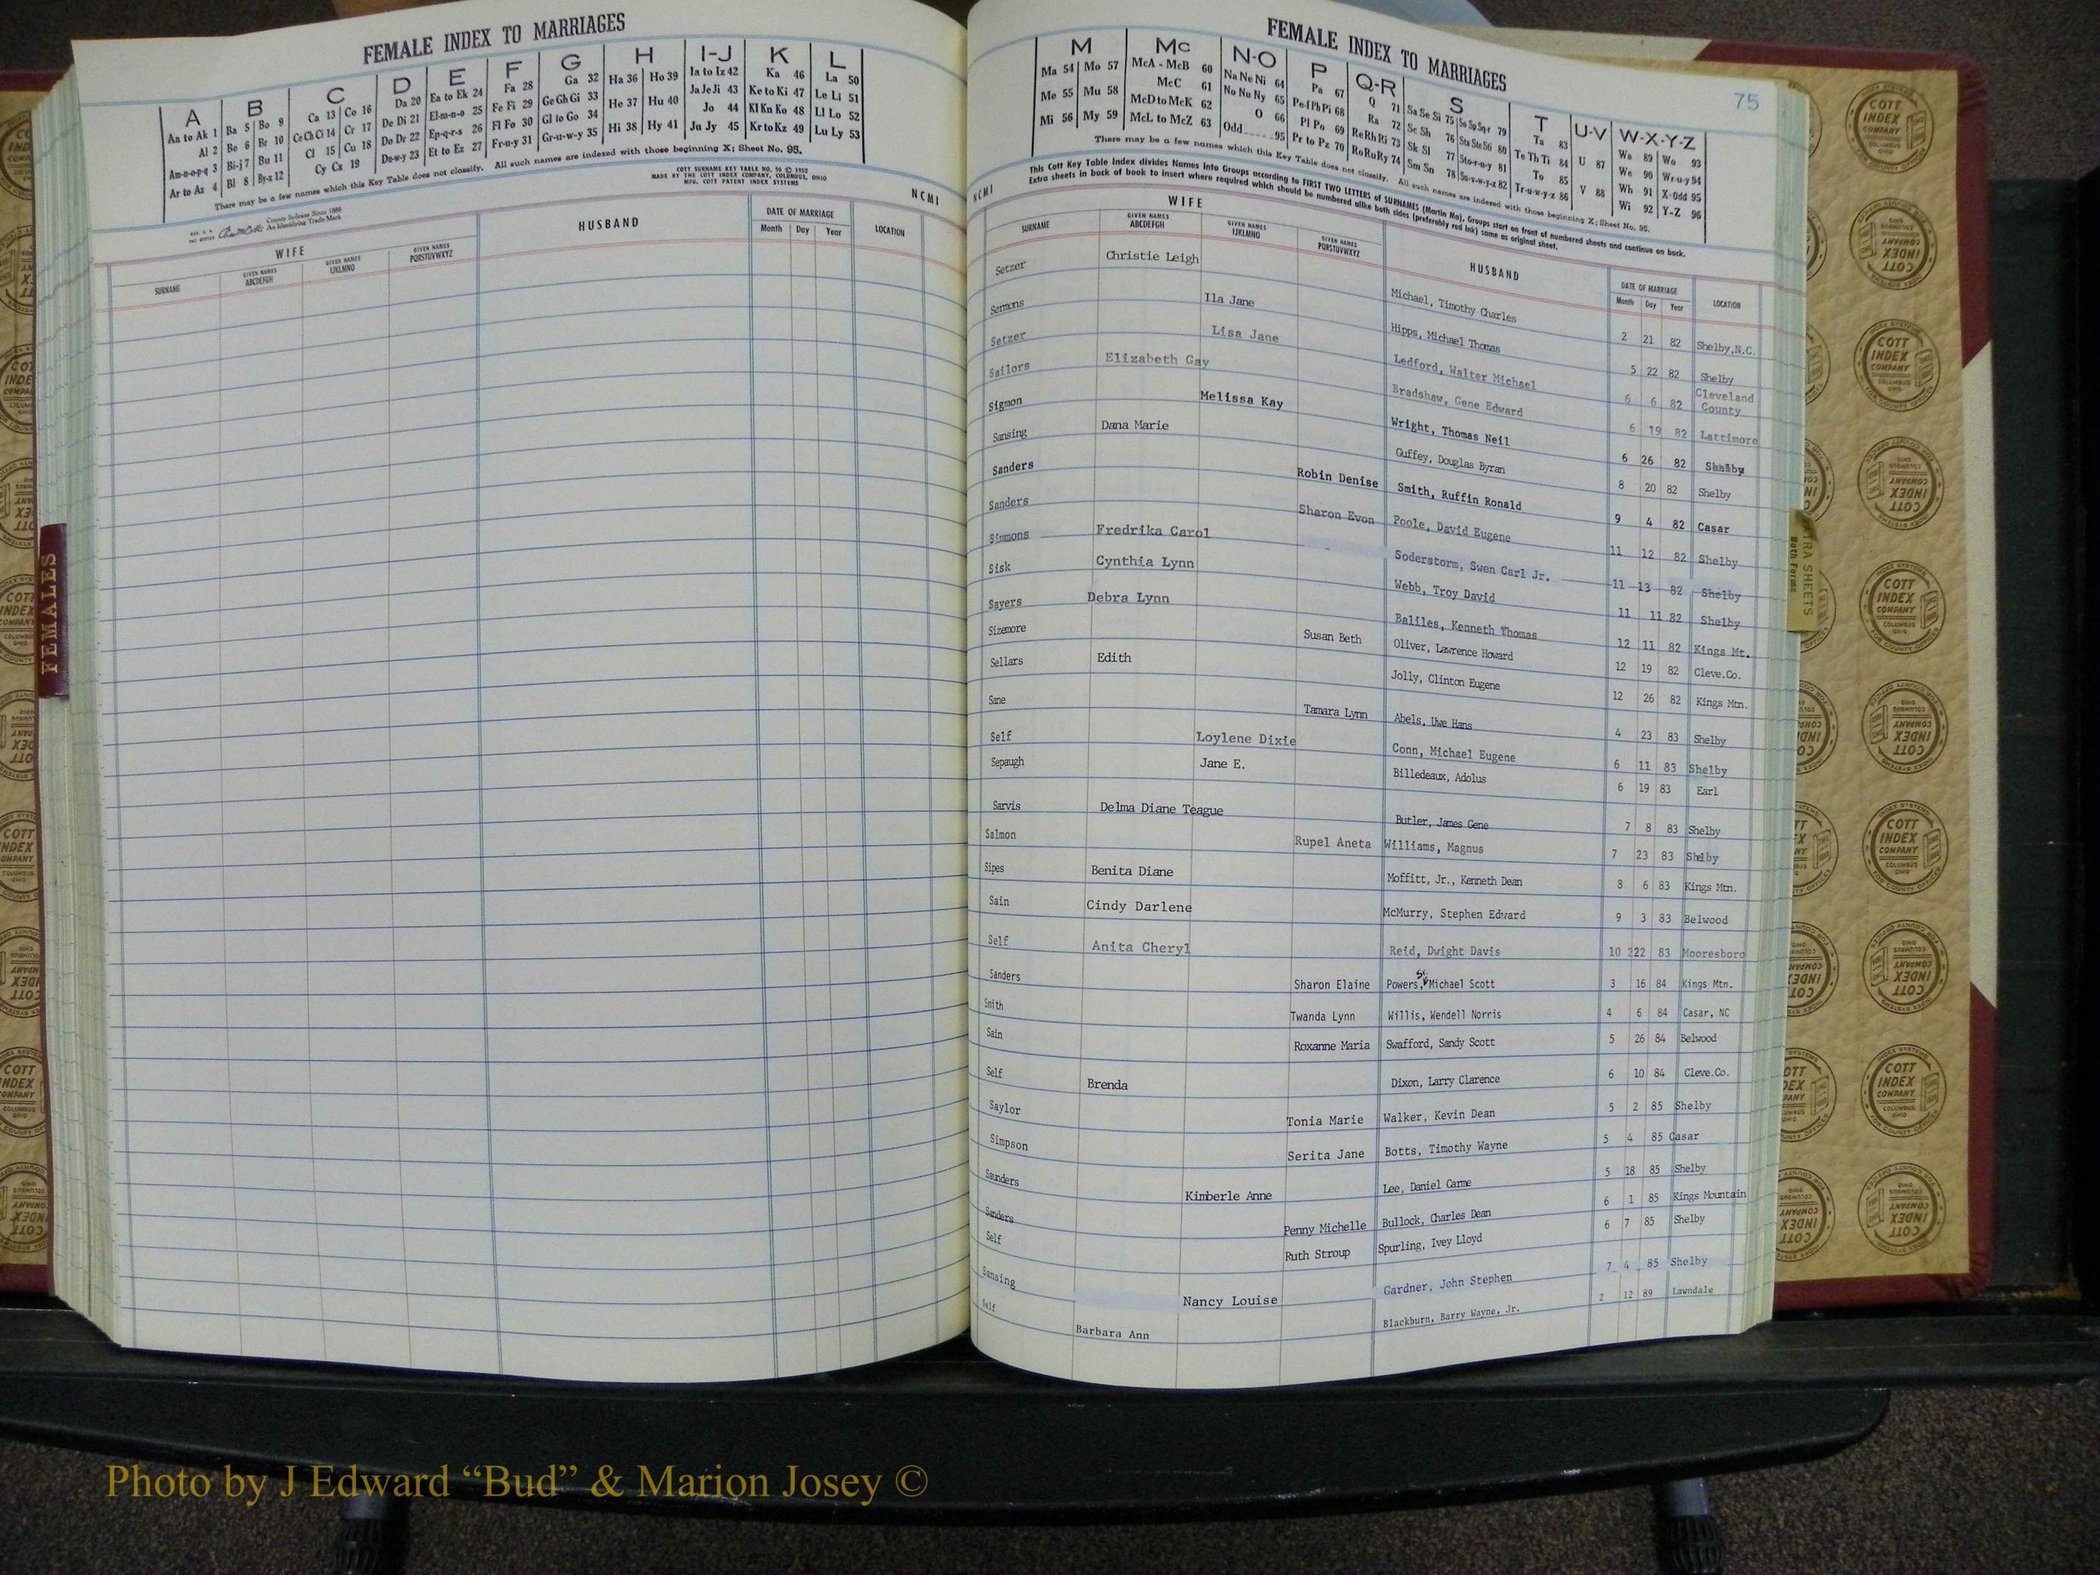 FEMALE INDEX TO MARRIAGES
A B C D E F G H I-J K L
Aa to Ak 1 Ba 5 Bo 9 Ca 13 Co 16 Da 20 Ea to Ek 24 Fa 28 Ga 32 Ha 36 Ho 39 Ia to Iz 42 Ka 46 La 50
Al 2 Be 6 Br 10 Ce Ch Ci 14 Cr 17 De Di 21 El-m-n-o 25 Fe Fi 29 Ge Gh Gi 33 He 37 Hu 40 Ja Je Ji 43 Ke to Ki 47 Le Li 51
Am-n-o-p-q 3 Bi-j 7 Bu 11 Cl 15 Cu 18 Do Dr 22 Ep-q-r-s 26 Fl Fo 30 Gl to Go 34 Hi 38 Hy 41 Jo 44 Kl Kn Ko 48 Ll Lo 52
Ar to Az 4 Bl 8 By-z 12 Cy Cz 19 De-w-y 23 Et to Ez 27 Fr-u-y 31 Gr-u-w-y 35 Ju Jy 45 Kr to Kz 49 Lu Ly 53
There may be a few names which this Key Table does not classify. All such names are indexed with those beginning X; Sheet No. 95.
COTT SURNAME KEY TABLE NO. 96 © 1952
MADE BY THE COTT INDEX COMPANY, COLUMBUS, OHIO
MFG. COTT PATENT INDEX SYSTEMS
NCMI
County Indexes Since 1888
An Identifying Trade Mark
WIFE HUSBAND DATE OF MARRIAGE LOCATION
SURNAME GIVEN NAMES ABCDEFGH GIVEN NAMES IJKLMNO GIVEN NAMES PQRSTUVWXYZ Month Day Year
FEMALES
FEMALE INDEX TO MARRIAGES
75
M Mc N-O P Q-R S T U-V W-X-Y-Z
Ma 54 Mo 57 McA - McB 60 Na Ne Ni 64 Pa 67 Q 71 Sa Se Si 75 So Sp Sq-r 79 Ta 83 U 87 Wa 89 Wo 93
Me 55 Mu 58 McC 61 No Nu Ny 65 Pe-f Ph Pi 68 Ra 72 Sc Sh 76 Sta Ste S6 80 Te Th Ti 84 V 88 We 90 Wr-u-y 94
Mi 56 My 59 McD to McK 62 O 66 Pl Po 69 Re Rh Ri 73 Sk Sl 77 Sto-r-u-y 81 To 85 Wh 91 X-Odd 95
McL to McZ 63 Odd 95 Pr to Pz 70 Ro Ru Ry 74 Sm Sn 78 Su-v-w-y-z 82 Tr-u-w-y-z 86 Wi 92 Y-Z 96
There may be a few names which this Key Table does not classify. All such names are indexed with those beginning X; Sheet No. 95.
This Cott Key Table Index divides Names into Groups according to FIRST TWO LETTERS of SURNAMES (Martin Ma), Groups start on front of numbered sheets and continue on back.
Extra sheets in back of book to insert where required which should be numbered alike both sides (preferably red ink) same as original sheet.
NCMI
WIFE HUSBAND DATE OF MARRIAGE LOCATION
SURNAME GIVEN NAMES ABCDEFGH GIVEN NAMES IJKLMNO GIVEN NAMES PQRSTUVWXYZ Month Day Year
Setzer Christie Leigh Michael, Timothy Charles 2 21 82 Shelby,N.C.
Sermons Ila Jane Hipps, Michael Thomas 5 22 82 Shelby
Setzer Lisa Jane Ledford, Walter Michael 6 6 82 Cleveland County
Sailors Elizabeth Gay Bradshaw, Gene Edward 6 19 82 Lattimore
Sigmon Melissa Kay Wright, Thomas Neil 6 26 82 Shelby
Sansing Dana Marie Guffey, Douglas Byran 8 20 82 Shelby
Sanders Robin Denise Smith, Ruffin Ronald 9 4 82 Casar
Sanders Sharon Evon Poole, David Eugene 11 12 82 Shelby
Simmons Fredrika Carol Soderstorm, Swen Carl Jr. 11 13 82 Shelby
Sisk Cynthia Lynn Webb, Troy David 11 11 82 Shelby
Sayers Debra Lynn Baliles, Kenneth Thomas 12 11 82 Kings Mt.
Sizemore Susan Beth Oliver, Lawrence Howard 12 19 82 Cleve.Co.
Sellars Edith Jolly, Clinton Eugene 12 26 82 Kings Mtn.
Sane Tamara Lynn Abels, Uwe Hans 4 23 83 Shelby
Self Loylene Dixie Conn, Michael Eugene 6 11 83 Shelby
Sepaugh Jane E. Billedeaux, Adolus 6 19 83 Earl
Sarvis Delma Diane Teague Butler, James Gene 7 8 83 Shelby
Salmon Rupel Aneta Williams, Magnus 7 23 83 Shelby
Sipes Benita Diane Moffitt, Jr., Kenneth Dean 8 6 83 Kings Mtn.
Sain Cindy Darlene McMurry, Stephen Edward 9 3 83 Belwood
Self Anita Cheryl Reid, Dwight Davis 10 222 83 Mooresboro
Sanders Sharon Elaine Powers, Sr. Michael Scott 3 16 84 Kings Mtn.
Smith Twanda Lynn Willis, Wendell Norris 4 6 84 Casar, NC
Sain Roxanne Maria Swafford, Sandy Scott 5 26 84 Belwood
Self Brenda Dixon, Larry Clarence 6 10 84 Cleve.Co.
Saylor Tonia Marie Walker, Kevin Dean 5 2 85 Shelby
Simpson Serita Jane Botts, Timothy Wayne 5 4 85 Casar
Saunders Kimberle Anne Lee, Daniel Carme 5 18 85 Shelby
Sanders Penny Michelle Bullock, Charles Dean 6 1 85 Kings Mountain
Self Ruth Stroup Spurling, Ivey Lloyd 6 7 85 Shelby
Sansing Nancy Louise Gardner, John Stephen 7 4 85 Shelby
Self Barbara Ann Blackburn, Barry Wayne, Jr. 2 12 89 Lawndale
EXTRA SHEETS
Both Forms
COTT INDEX COMPANY
COLUMBUS OHIO
INDEX SYSTEMS FOR COUNTY OFFICES
Photo by J Edward “Bud” & Marion Josey ©